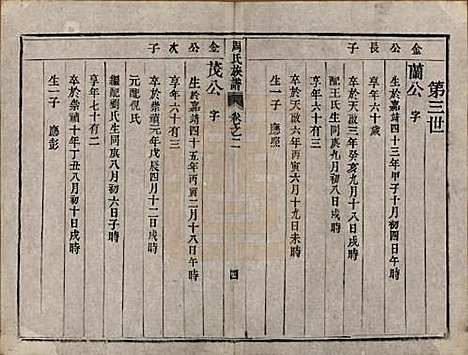 第三世
金蘭公長子
蘭公 字
生於嘉靖四十三年甲子十月初四日午時
卒於天啟三年癸亥九月十八日戌時
享年六十歲
配王氏生同庚九月初八日戌時
卒於天啟六年丙寅六月十九日未時
享年六十有三
生一子 應熙
周氏族譜 卷之二 四
金公次子
茂公 字
生於嘉靖四十五年丙寅二月十八日午時
卒於崇禎元年戊辰四月十二日戌時
享年六十有三
元配倪氏
繼配劉氏生同庚八月初六日子時
卒於崇禎十年丁丑八月初十日戌時
享年七十有二
生一子 應彭